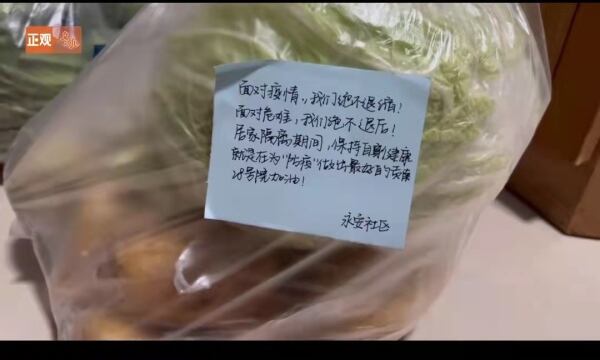 正观
面对疫情，我们绝不退缩！
面对危难，我们绝不退后！
居家隔离期间，保持自身健康
就是在为"防疫"做出最好的贡献
28号院加油！
永安社区